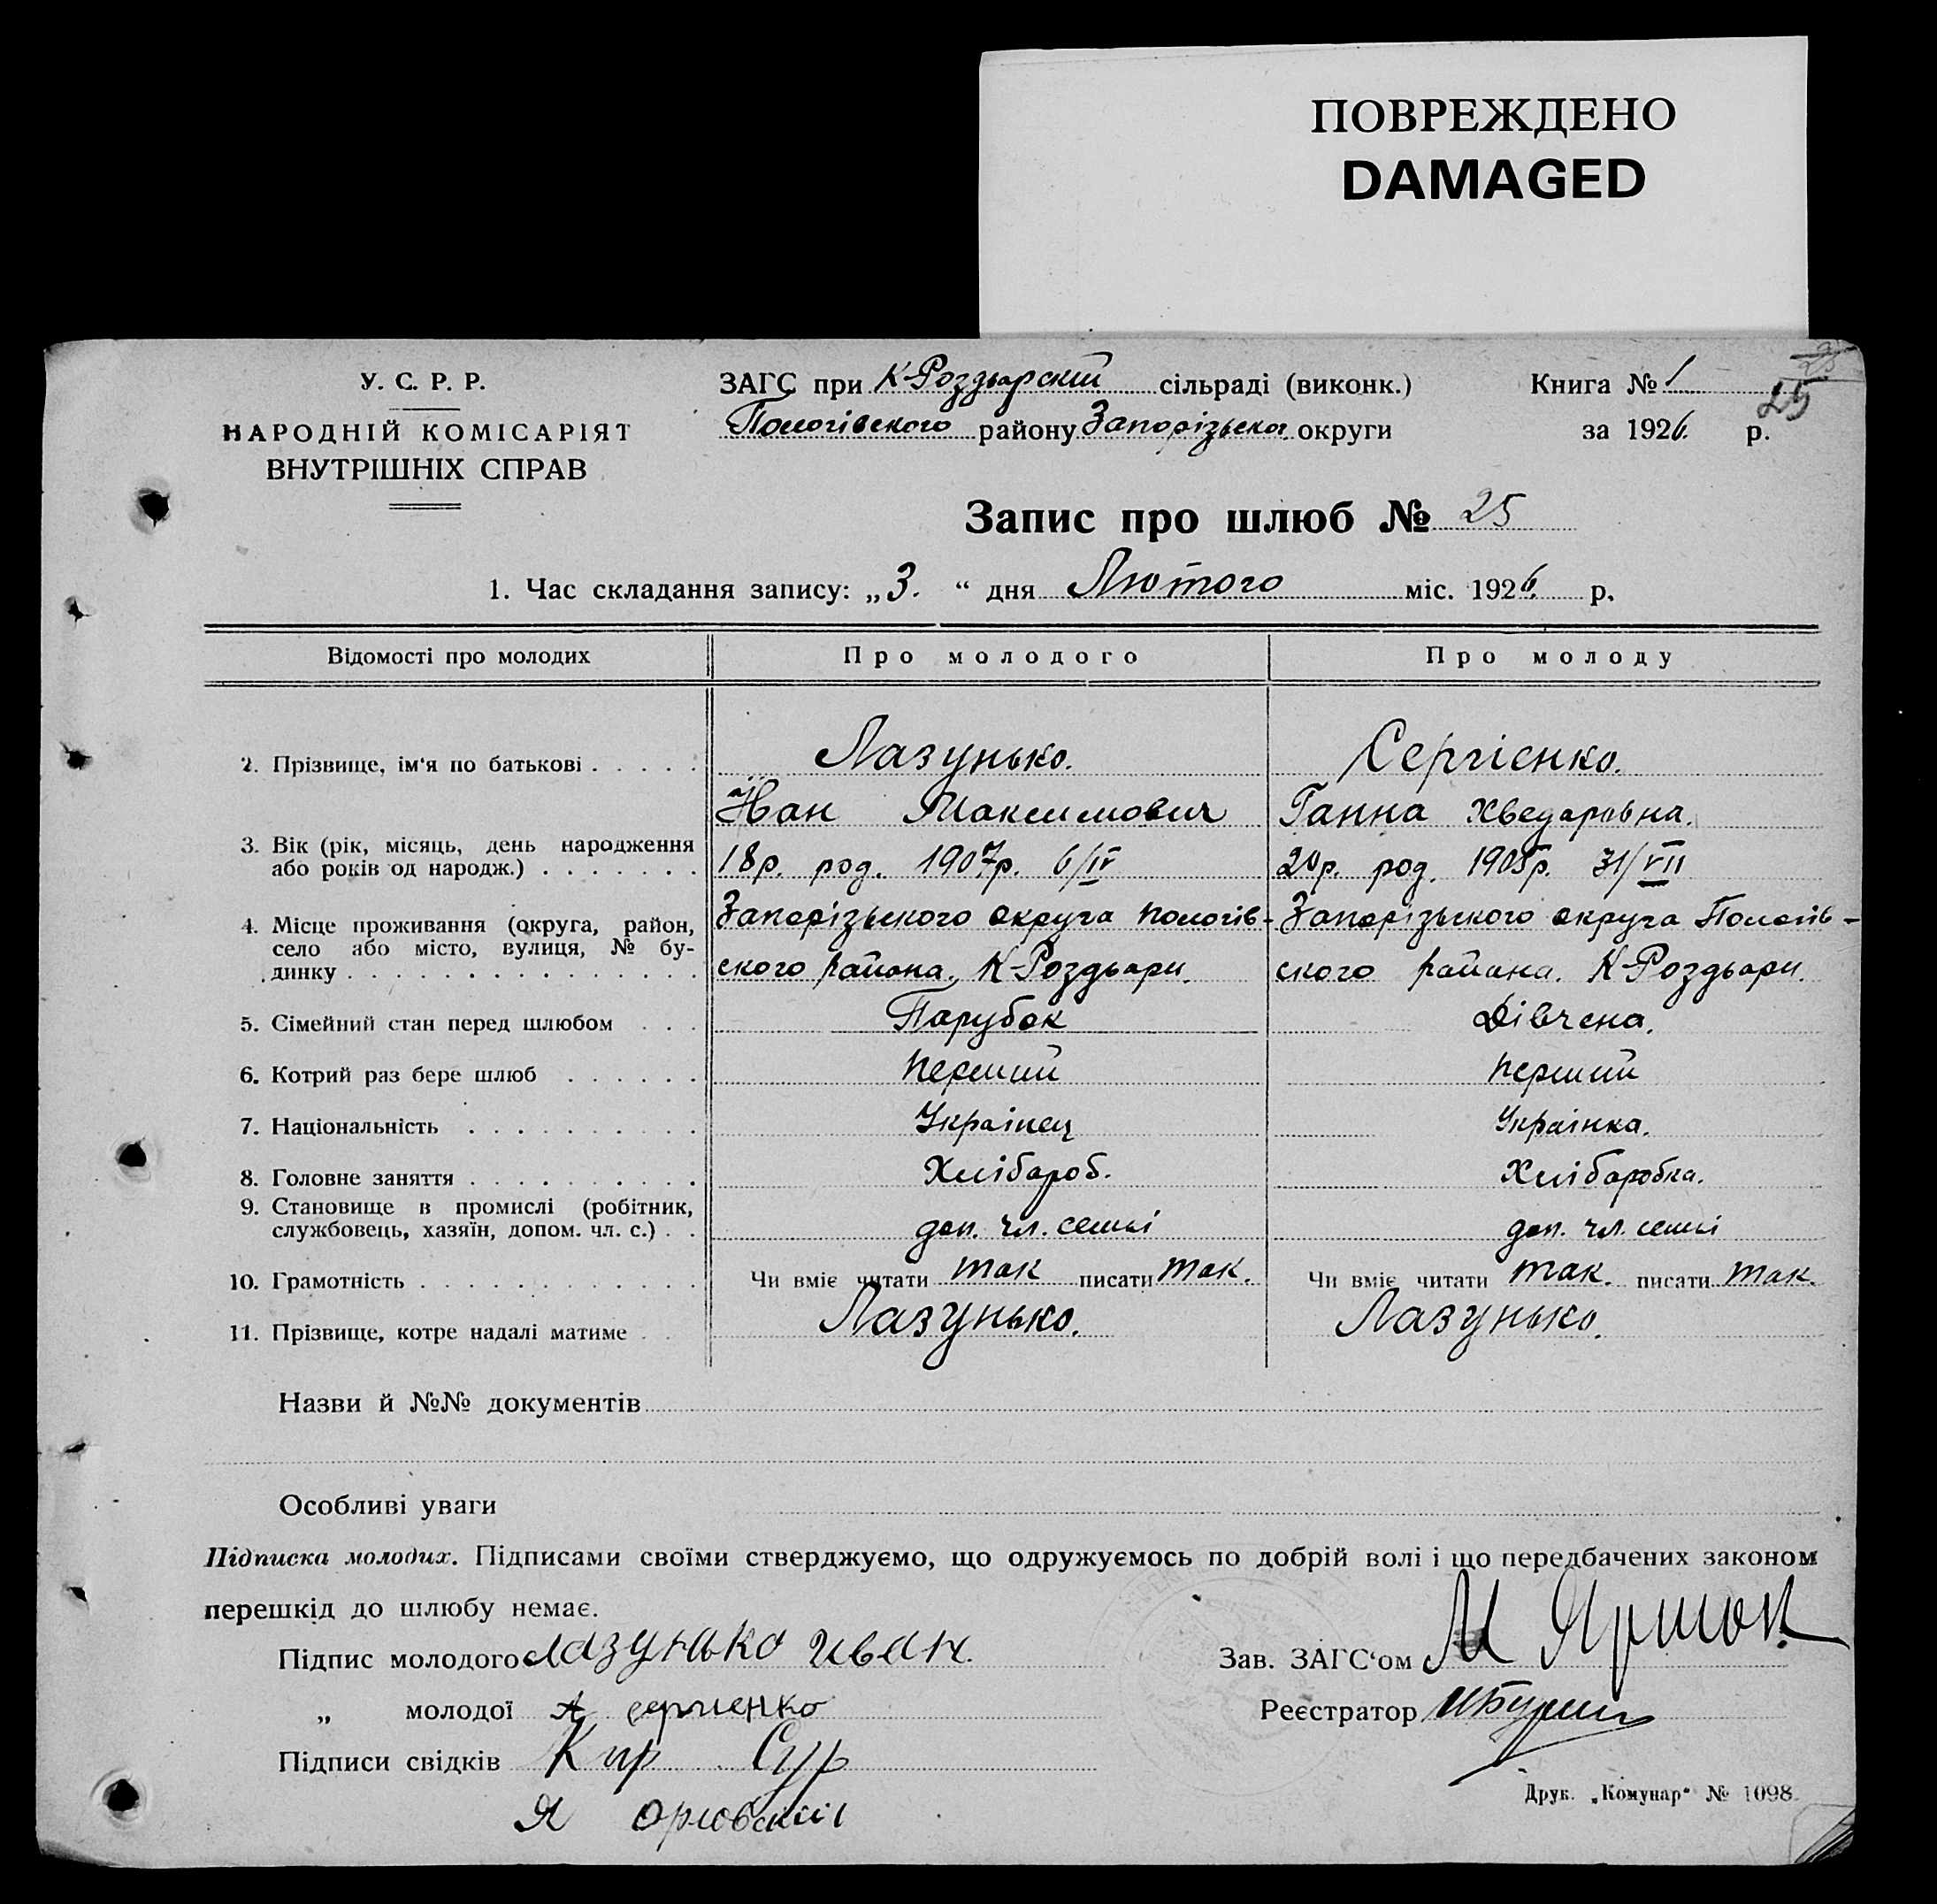 ПОВРЕЖДЕНО
DAMAGED
У. С. Р. Р.
НАРОДНІЙ КОМІСАРІЯТ
ВНУТРІШНІХ СПРАВ
ЗАГС при К-Роздьорскій сільраді (виконк.)
Пологівского району Запорізьког округи
Книга № 1
25
за 1926. р.
Запис про шлюб № 25
1. Час складання запису: „3.“ дня Лютого міс. 1926. р.
Відомості про молодих Про молодого Про молоду
2. Прізвище, ім'я по батькові Лазунько. Сергіенко.
Іван Максимович Ганна Хведоровна.
3. Вік (рік, місяць, день народження
або років од народж.) 18р. род. 1907р. 6/IV 20р. род. 1905р. 31/VII
4. Місце проживання (округа, район, Запорізького округа пологів- Запорізького округа Пологів-
село або місто, вулиця, № бу-
динку ского района, К-Роздьори. ского района. К-Роздьори.
5. Сімейний стан перед шлюбом Парубок Дівчена.
6. Котрий раз бере шлюб перший перший
7. Національність Українец Українка.
8. Головне заняття Хлібороб. Хліборобка.
9. Становище в промислі (робітник,
службовець, хазяїн, допом. чл. с.) доп. чл. семьі доп. чл. семьі
10. Грамотність Чи вміє читати так писати так. Чи вміє читати так. писати так.
11. Прізвище, котре надалі матиме Лазунько. Лазунько.
Назви й №№ документів
Особливі уваги
Підписка молодих. Підписами своїми стверджуємо, що одружуємось по добрій волі і що передбачених законом
перешкід до шлюбу немає.
Підпис молодого Лазунько Иван.
Зав. ЗАГС‘ом М
„ молодої А Сергиенко
Реєстратор
Підписи свідків Кир Сур
Я Орловский
Друк. „Комунар“ № 1098.